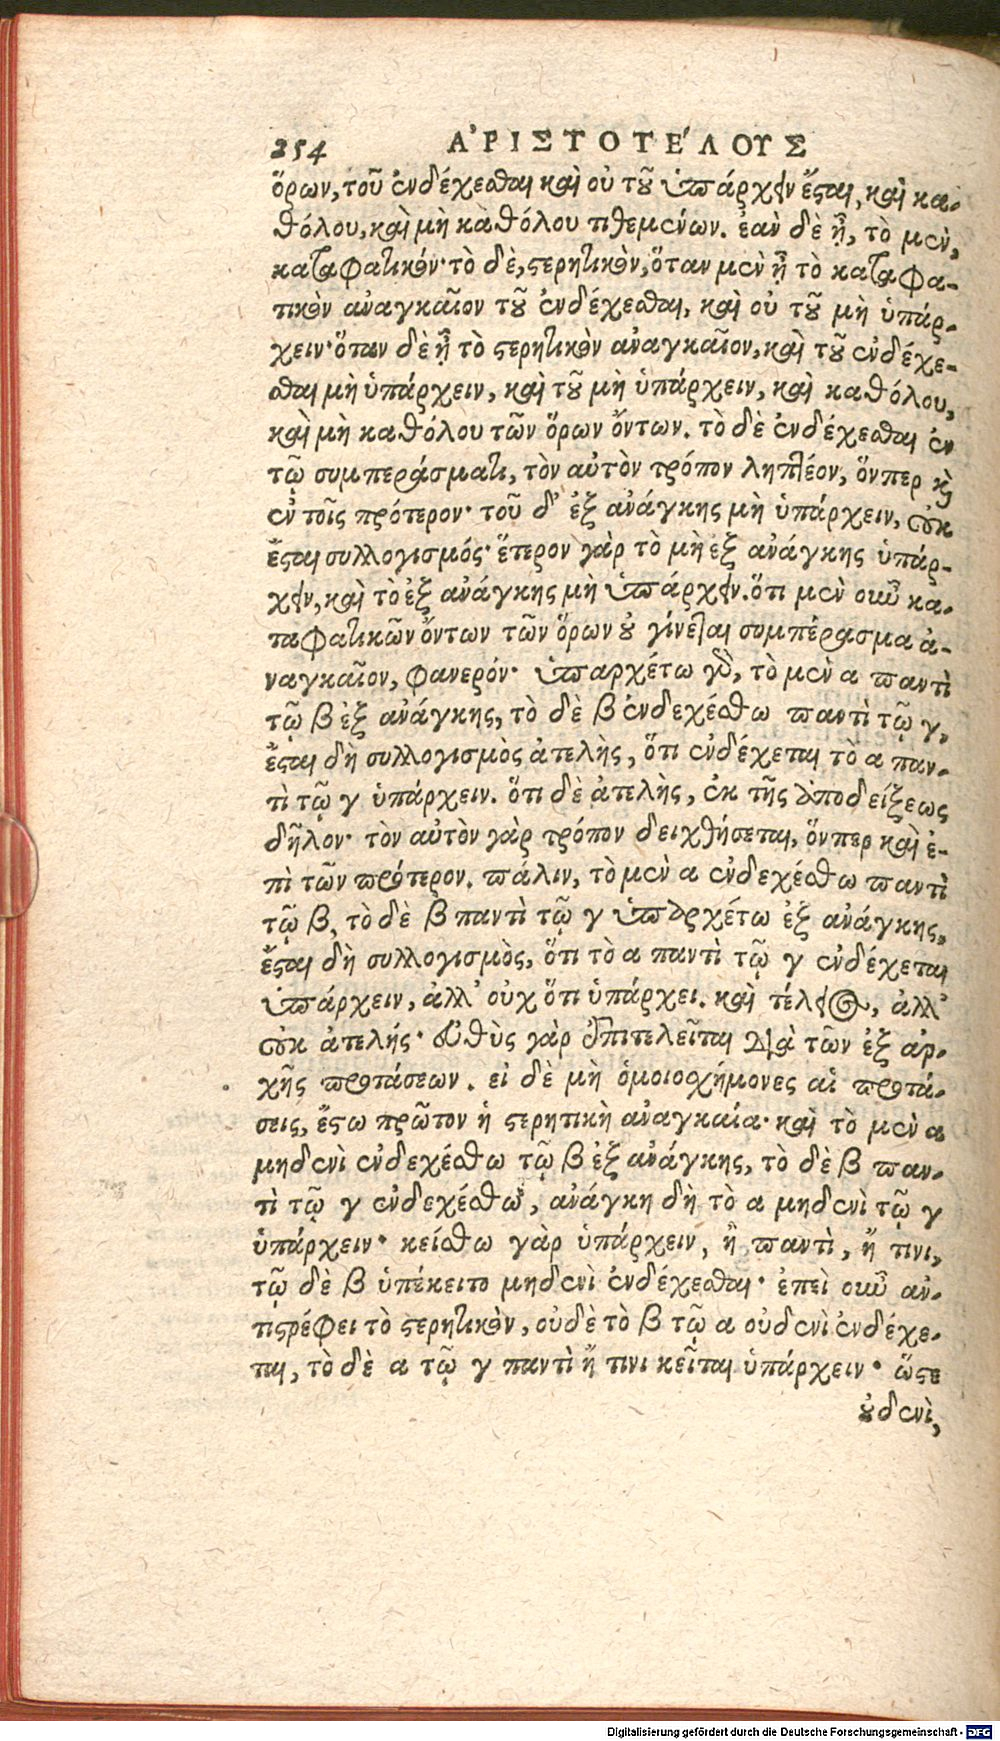 254 ΑΡΙΣΤΟΤΕΛΟΥΣ
ὅρων, τοῦ ἐνδέχεσθαι καὶ οὐ τοῦ ὑπάρχειν ἔσται, καὶ κα-
θόλου, καὶ μὴ καθόλου τιθεμένων. ἐὰν δὲ ᾖ, τὸ μὲν,
καταφατικόν· τὸ δὲ, στερητικὸν, ὅταν μὲν ᾖ τὸ καταφα-
τικὸν ἀναγκαῖον τοῦ ἐνδέχεσθαι, καὶ οὐ τοῦ μὴ ὑπάρ-
χειν· ὅταν δὲ ᾖ τὸ στερητικὸν ἀναγκαῖον, καὶ τοῦ ἐνδέχε-
σθαι μὴ ὑπάρχειν, καὶ τοῦ μὴ ὑπάρχειν, καὶ καθόλου,
καὶ μὴ καθόλου τῶν ὅρων ὄντων. τὸ δὲ ἐνδέχεσθαι ἐν
τῷ συμπεράσματι, τὸν αὐτὸν τρόπον ληπτέον, ὅνπερ καὶ
ἐν τοῖς πρότερον· τοῦ δ' ἐξ ἀνάγκης μὴ ὑπάρχειν, οὐκ
ἔσται συλλογισμός· ἕτερον γὰρ τὸ μὴ ἐξ ἀνάγκης ὑπάρ-
χειν, καὶ τὸ ἐξ ἀνάγκης μὴ ὑπάρχειν. ὅτι μὲν οὖν κα-
ταφατικῶν ὄντων τῶν ὅρων οὐ γίνεται συμπέρασμα ἀ-
ναγκαῖον, φανερόν· ὑπαρχέτω γὰρ, τὸ μὲν α παντὶ
τῷ β ἐξ ἀνάγκης, τὸ δὲ β ἐνδεχέσθω παντὶ τῷ γ,
ἔσται δὴ συλλογισμὸς ἀτελὴς, ὅτι ἐνδέχεται τὸ α παν-
τὶ τῷ γ ὑπάρχειν. ὅτι δὲ ἀτελὴς, ἐκ τῆς ἀποδείξεως
δῆλον· τὸν αὐτὸν γὰρ τρόπον δειχθήσεται, ὅνπερ καὶ ἐ-
πὶ τῶν πρότερον. πάλιν, τὸ μὲν α ἐνδεχέσθω παντὶ
τῷ β, τὸ δὲ β παντὶ τῷ γ ὑπαρχέτω ἐξ ἀνάγκης,
ἔσται δὴ συλλογισμὸς, ὅτι τὸ α παντὶ τῷ γ ἐνδέχεται
ὑπάρχειν, ἀλλ' οὐχ ὅτι ὑπάρχει. καὶ τέλειος, ἀλλ'
οὐκ ἀτελής· εὐθὺς γὰρ ἐπιτελεῖται διὰ τῶν ἐξ ἀρ-
χῆς προτάσεων. εἰ δὲ μὴ ὁμοιοσχήμονες αἱ προτά-
σεις, ἔστω πρῶτον ἡ στερητικὴ ἀναγκαία· καὶ τὸ μὲν α
μηδενὶ ἐνδεχέσθω τῷ β ἐξ ἀνάγκης, τὸ δὲ β παν-
τὶ τῷ γ ἐνδεχέσθω, ἀνάγκη δὴ τὸ α μηδενὶ τῷ γ
ὑπάρχειν· κείσθω γὰρ ὑπάρχειν, ἢ παντὶ, ἤ τινι,
τῷ δὲ β ὑπέκειτο μηδενὶ ἐνδέχεσθαι· ἐπεὶ οὖν ἀν-
τιστρέφει τὸ στερητικὸν, οὐδὲ τὸ β τῷ α οὐδενὶ ἐνδέχε-
ται, τὸ δὲ α τῷ γ παντὶ ἤ τινι κεῖται ὑπάρχειν· ὥστε
οὐδενὶ,
Digitalisierung gefördert durch die Deutsche Forschungsgemeinschaft - DFG